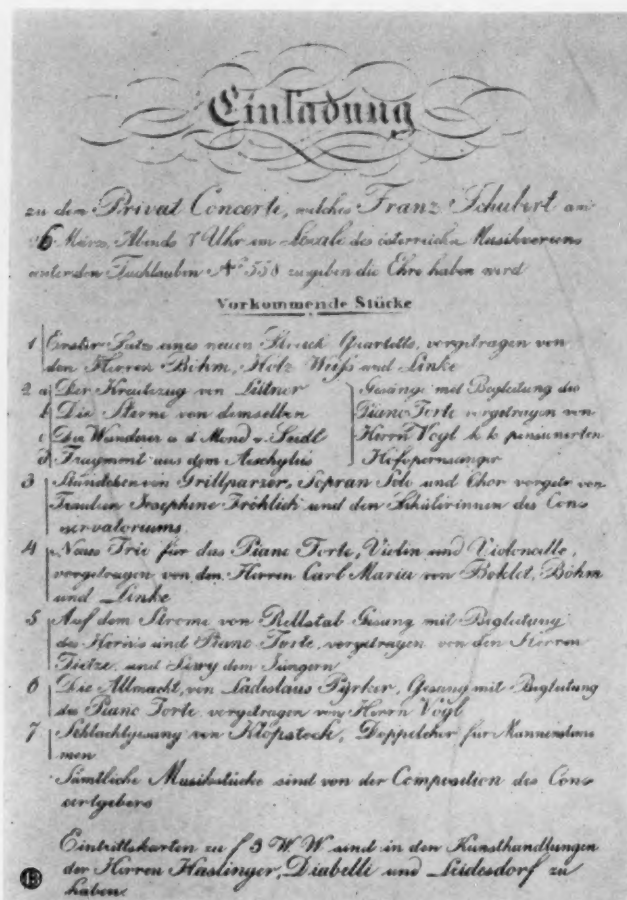 Einladung
zu dem Privat Concerte, welches Franz Schubert am
26 März, Abends 7 Uhr im Locale des österreich: Musikvereins
unter den Tuchlauben No 558 zu geben die Ehre haben wird
Vorkommende Stücke
1 Erster Satz eines neuen Streich Quartetts, vorgetragen von
den Herren Böhm, Holz Weiß und Linke
2 a Der Kreutzzug von Leitner Gesänge mit Begleitung des
b Die Sterne von demselben Piano Forte vorgetragen von
c Der Wanderer a d Mond v Seidl Herrn Vogl k k pensionirten
d Fragment aus dem Aeschylus Hofopernsänger
3 Ständchen von Grillparzer, Sopran Solo und Chor vorgetr von
Fräulein Josephine Fröhlich und den Schülerinnen des Con=
servatoriums
4 Neues Trio für das Piano Forte, Violin und Violoncelle,
vorgetragen von den Herren Carl Maria von Boklet, Böhm
und Linke
5 Auf dem Strome von Rellstab Gesang mit Begleitung
des Horns und Piano Forte, vorgetragen von den Herren
Tietze und Lewy dem Jüngern
6 Die Allmacht, von Ladislaus Pyrker, Gesang mit Begleitung
des Piano Forte vorgetragen von Herrn Vogl
7 Schlachtgesang von Klopstock, Doppelchor für Männerstim=
men
Sämtliche Musikstücke sind von der Composition des Con=
certgebers
Eintrittskarten zu f 3 W. W. sind in den Kunsthandlungen
der Herren Haslinger, Diabelli und Leidesdorf zu
haben